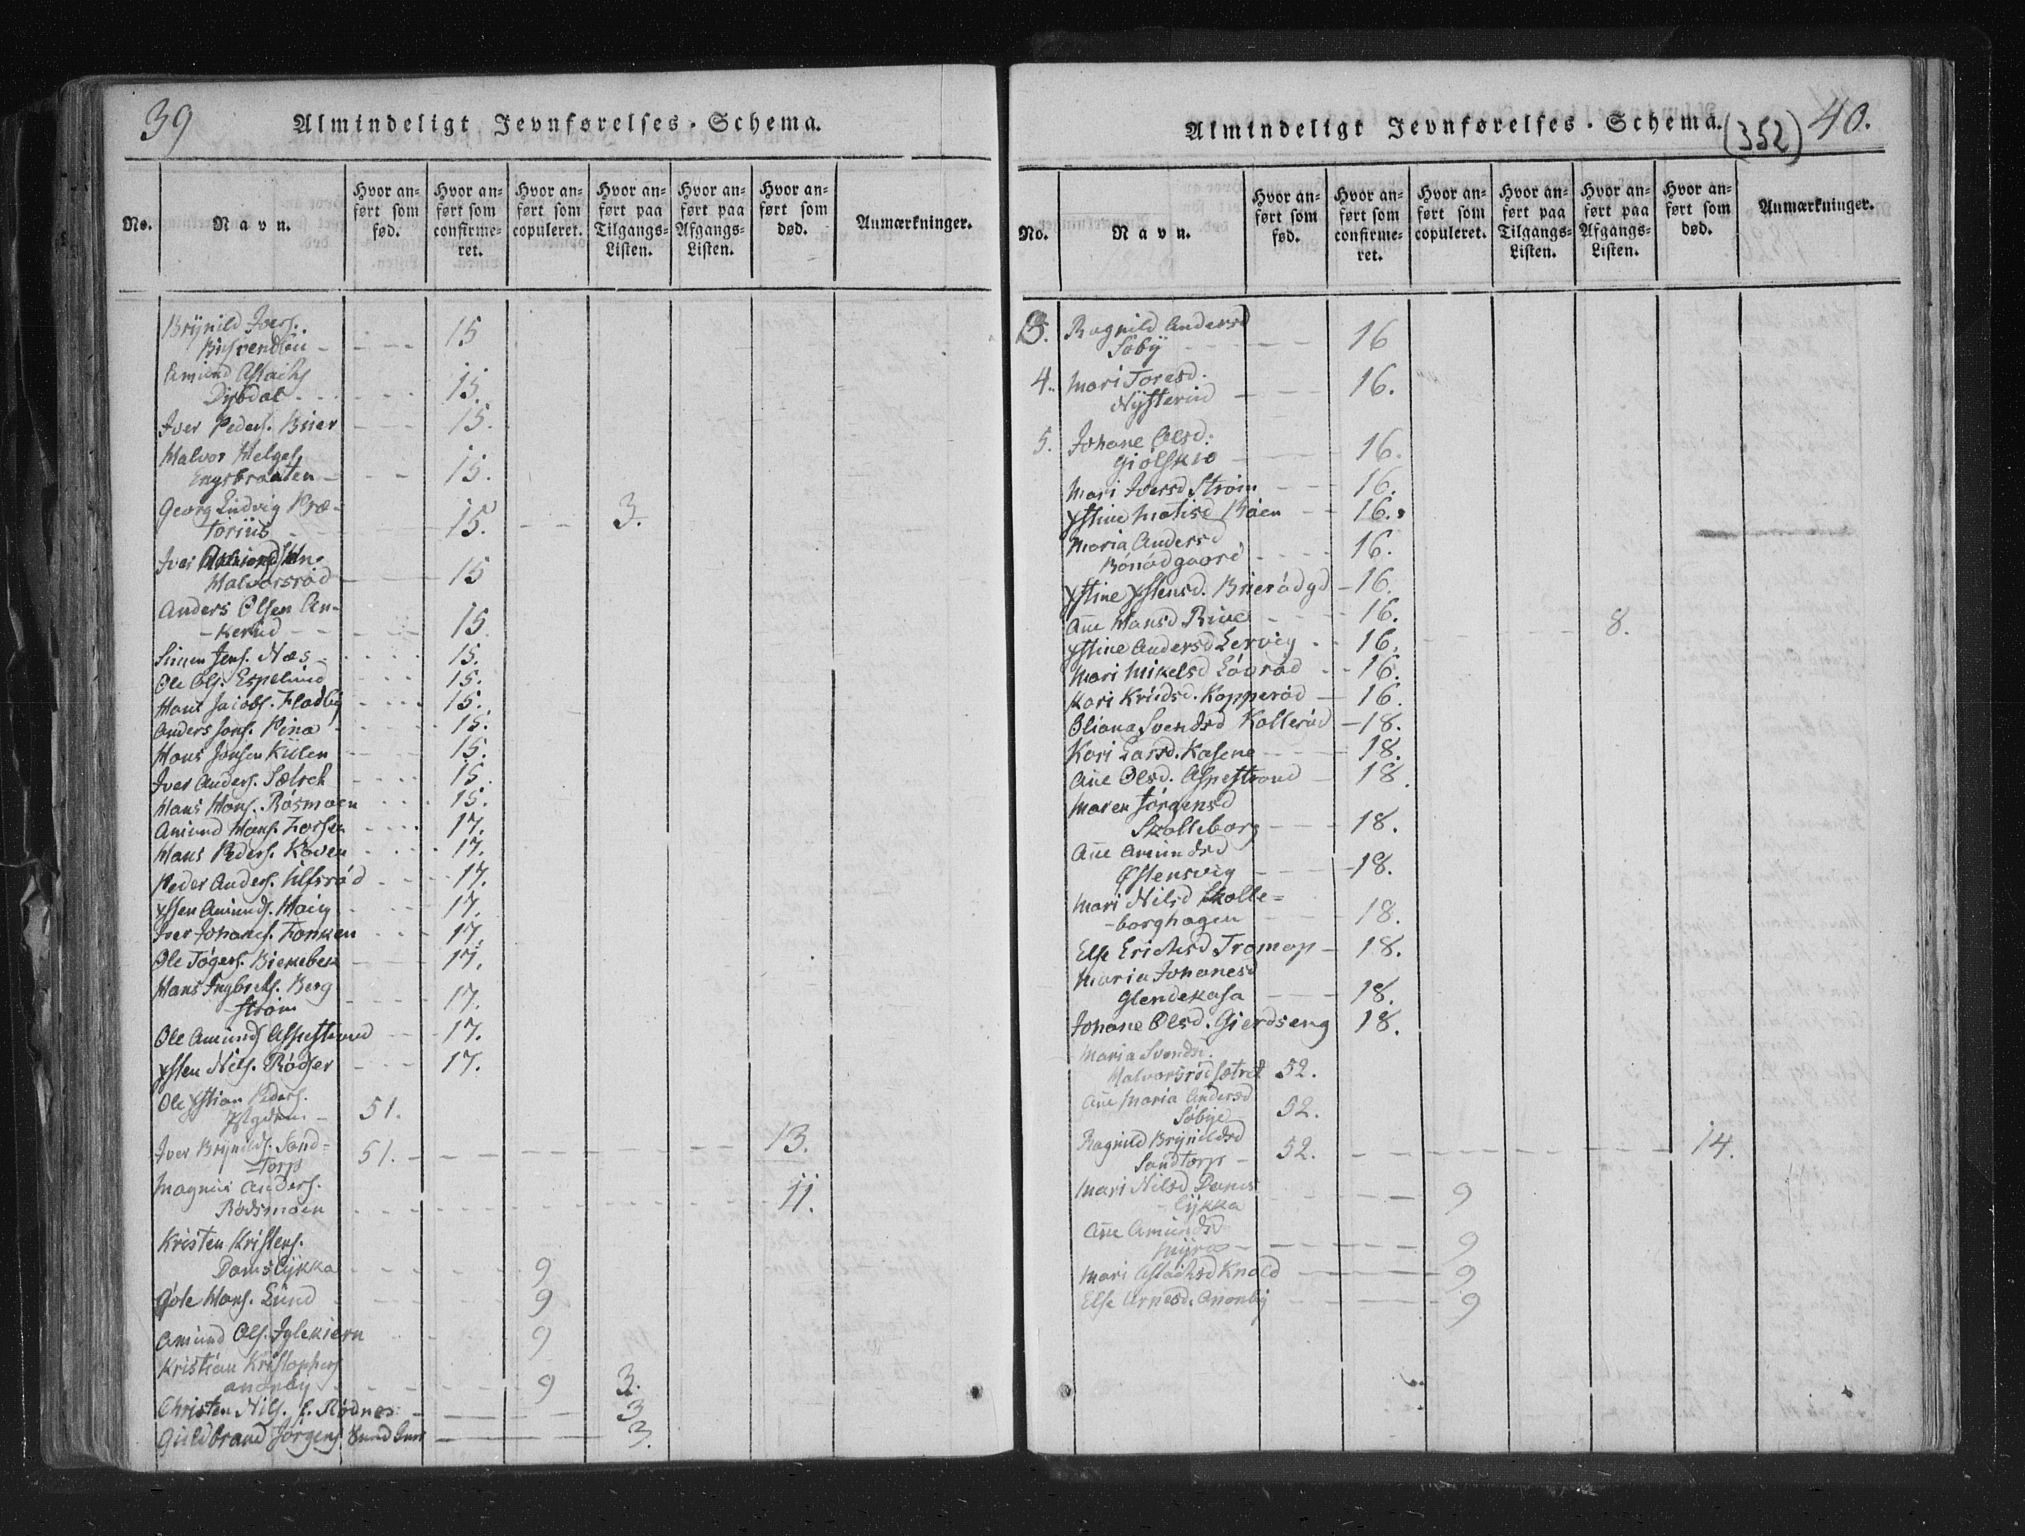 39
Almindeligt Jevnførelses-Schema.
No.
Navn.
Hvor an-
ført som
fød.
Hvor an-
ført som
confirme-
ret.
Hvor an-
ført som
copuleret.
Hvor an-
ført paa
Tilgangs-
Listen.
Hvor an-
ført paa
Afgangs-
Listen.
Hvor an-
ført som
død.
Anmærkninger.
Brynild Ivers.
15
Amund Aslachs
Dybdal 15.
Iver Peders. Brier 15.
Halvor Helges.
Engsbraaten 15.
Georg Ludvig Præ-
torius 15. 3.
Iver
Halvorsrød 15
Anders Olsen An-
kerud 15
Simen Jens. Næs 15.
Ole Ols. Espelund 15.
Hans Jacobs. Fladby 15.
Anders Jons. Pina 15.
Hans Jensen Kiilen 15.
Iver Anders. Sælret 15.
Hans Hans. Røsmoen 15.
Amund Hans. Forsen 17.
Hans Peders. Kaven 17.
Peder Anders. Ulfsrød 17.
Xsten Amunds. Haug 17.
Iver Johans. Fonken 17.
Ole Togers. Birkebek 17.
Hans Ingbrets. Berg
strøm 17.
Ole Amunds Aspestrand 17.
Xsten Nils. Rødser 17.
Ole Xstian Peders.
51.
Iver Brynilds. Sand-
torp 51. 13.
Magnus Anders.
Rødsmoen 11.
Kristen Kristens.
Damslykka 9
Gole Hans. Lund 9
Amund Ols. Iglekiern 9
Kristian Kristophers
anonby 9 3.
Christen Nils. f. Rødnes 3
Guldbrand Jørgens. Sund 3.
Almindeligt Jevnførelses-Schema.
(352)
40.
No.
Navn.
Hvor an-
ført som
fød.
Hvor an-
ført som
confirme-
ret.
Hvor an-
ført som
copuleret.
Hvor an-
ført paa
Tilgangs-
Listen.
Hvor an-
ført paa
Afgangs-
Listen.
Hvor an-
ført som
død.
Anmærkninger.
3. Ragnild Andersd
Søby 16
4. Mari Toresd.
Nysterud 16.
5. Johane Olsd.
Giølskiø 16.
Mari Iversd Strøm 16.
Xstine Matisd Båen 16.
Maria Andersd
Bønødgaard 16.
Xstine Xstensd. Brierødgd 16.
Ane Hansd Rive 16.
Xstine Andersd Lervig 16. 8.
Mari Mikelsd Løvrød 16.
Kari Knudsd. Kopperød 16.
Oliana Svendsd Kollerød 18.
Kari Larsd. Kasene 18.
Ane Olsd. Aspestrand 18.
Maren Jørgensd
Skolleborg 18.
Ane Amundsd
Østensvig 18.
Mari Nilsd Skolle-
borghagen 18.
Else Erichsd Tromop 18.
Maria Johanesd
Glendekasa 18.
Johane Olsd. Gierdseng 18.
Maria Svendsd.
Halvorsrødsætret 52.
Ane Maria Andersd
Søbye 52.
Ragnild Brynildsd
Sandtorp 52. 14.
Mari Nilsd Dams
lykka 9
Ane Amundsd
Myra 9
Mari Aslachsd Knold 9
Else Arnesd. Anonby 9